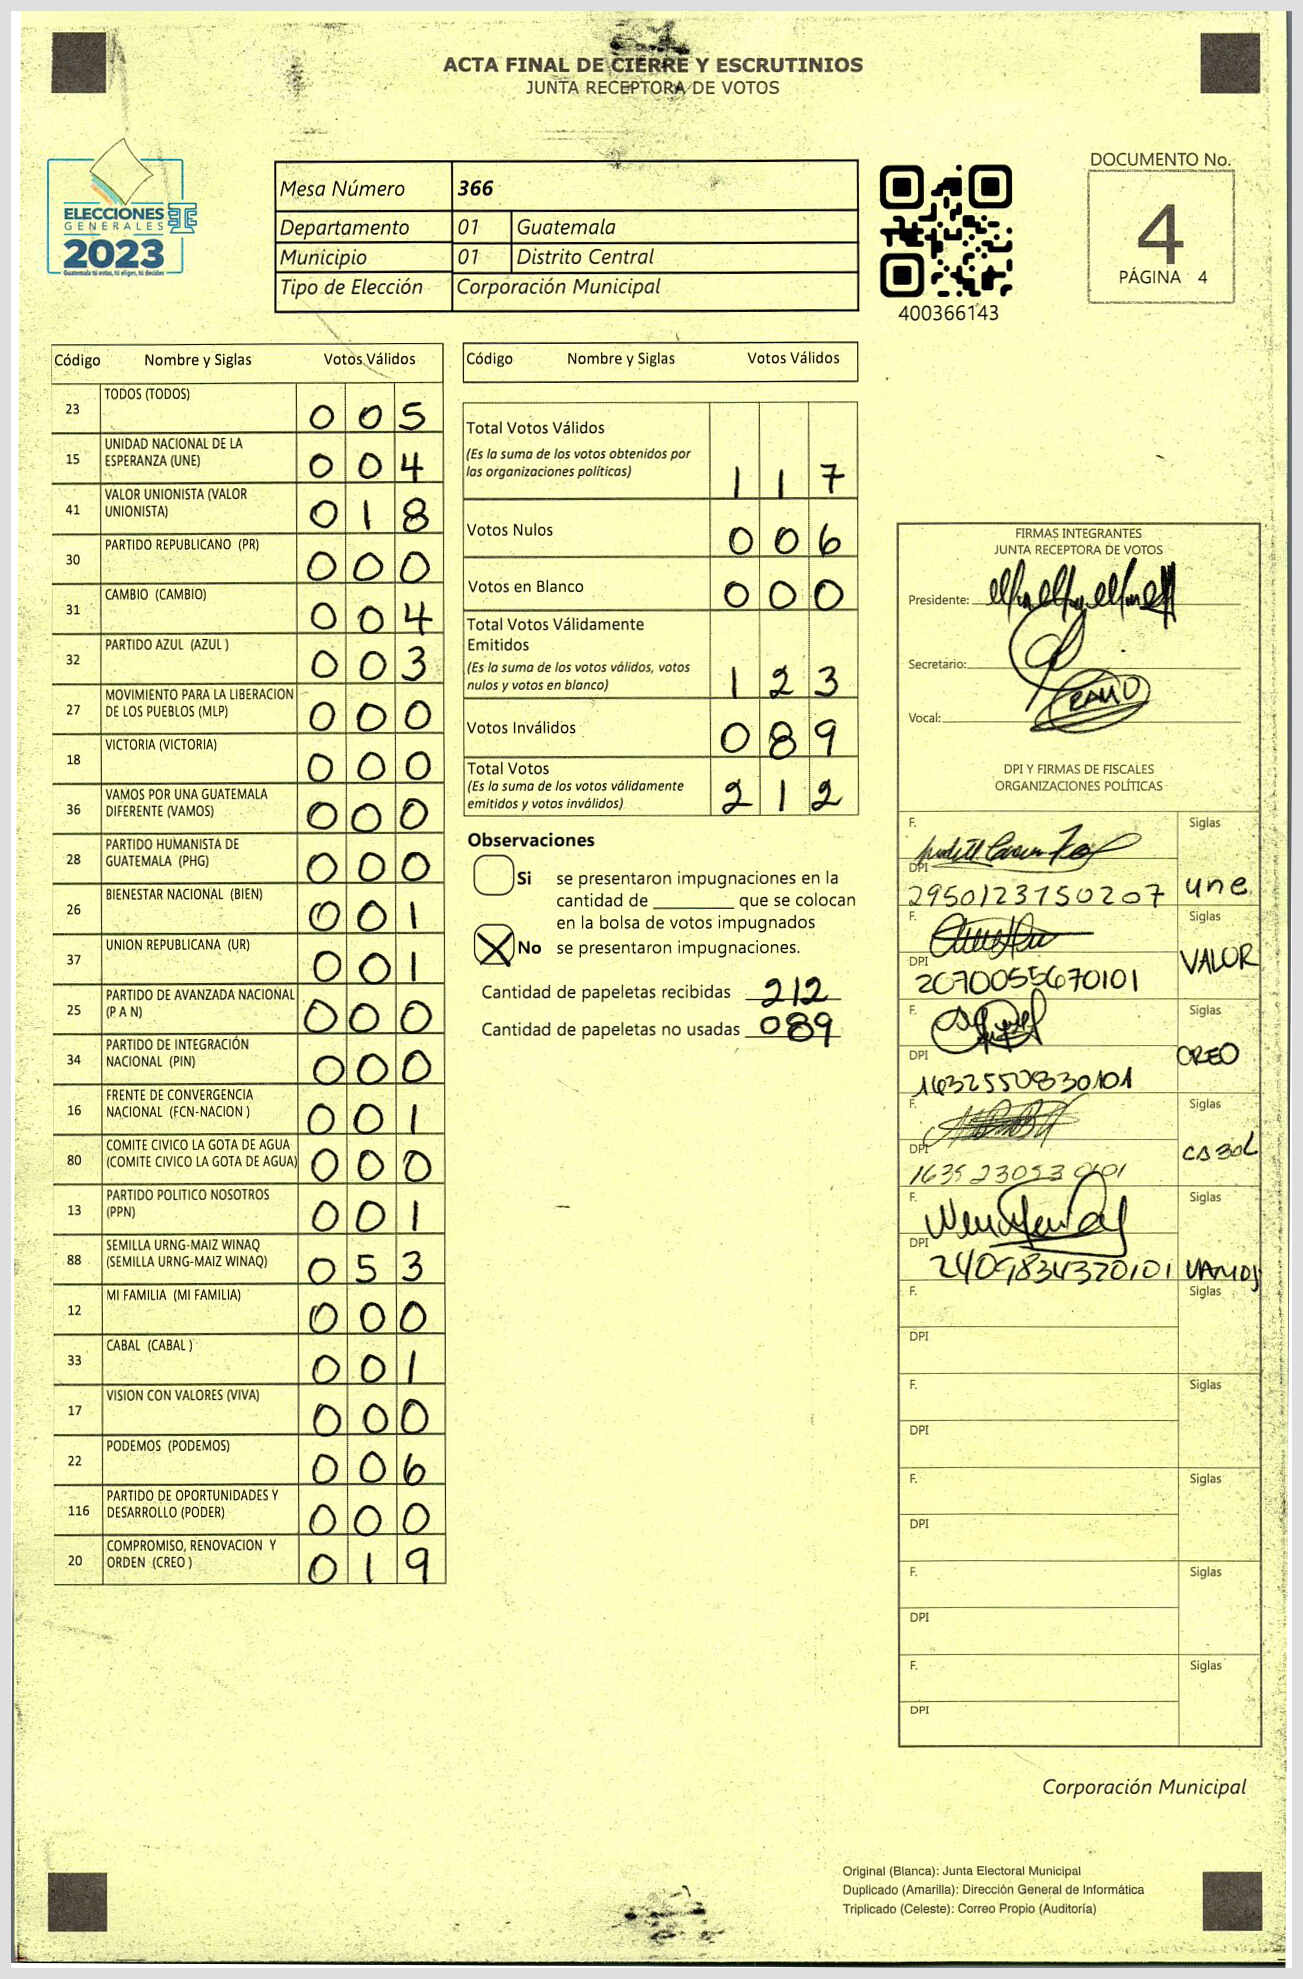 ACTA FINAL DE CIERRE Y ESCRUTINIOS
JUNTA RECEPTORA DE VOTOS
ELECCIONES
GENERALES
2023
Guatemala tú votas, tú eliges, tú decides
Mesa Número 366
Departamento 01 Guatemala
Municipio 01 Distrito Central
Tipo de Elección Corporación Municipal
400366143
DOCUMENTO No.
4
PÁGINA 4
Código Nombre y Siglas Votos Válidos
23 TODOS (TODOS) 0 0 5
15 UNIDAD NACIONAL DE LA
ESPERANZA (UNE) 0 0 4
41 VALOR UNIONISTA (VALOR
UNIONISTA) 0 1 8
30 PARTIDO REPUBLICANO (PR) 0 0 0
31 CAMBIO (CAMBIO) 0 0 4
32 PARTIDO AZUL (AZUL ) 0 0 3
27 MOVIMIENTO PARA LA LIBERACION
DE LOS PUEBLOS (MLP) 0 0 0
18 VICTORIA (VICTORIA) 0 0 0
36 VAMOS POR UNA GUATEMALA
DIFERENTE (VAMOS) 0 0 0
28 PARTIDO HUMANISTA DE
GUATEMALA (PHG) 0 0 0
26 BIENESTAR NACIONAL (BIEN) 0 0 1
37 UNION REPUBLICANA (UR) 0 0 1
25 PARTIDO DE AVANZADA NACIONAL
(P A N) 0 0 0
34 PARTIDO DE INTEGRACIÓN
NACIONAL (PIN) 0 0 0
16 FRENTE DE CONVERGENCIA
NACIONAL (FCN-NACION ) 0 0 1
80 COMITE CIVICO LA GOTA DE AGUA
(COMITE CIVICO LA GOTA DE AGUA) 0 0 0
13 PARTIDO POLITICO NOSOTROS
(PPN) 0 0 1
88 SEMILLA URNG-MAIZ WINAQ
(SEMILLA URNG-MAIZ WINAQ) 0 5 3
12 MI FAMILIA (MI FAMILIA) 0 0 0
33 CABAL (CABAL ) 0 0 1
17 VISION CON VALORES (VIVA) 0 0 0
22 PODEMOS (PODEMOS) 0 0 6
116 PARTIDO DE OPORTUNIDADES Y
DESARROLLO (PODER) 0 0 0
20 COMPROMISO, RENOVACION Y
ORDEN (CREO ) 0 1 9
Código Nombre y Siglas Votos Válidos
Total Votos Válidos
(Es la suma de los votos obtenidos por
las organizaciones políticas) 1 1 7
Votos Nulos 0 0 6
Votos en Blanco 0 0 0
Total Votos Válidamente
Emitidos
(Es la suma de los votos válidos, votos
nulos y votos en blanco) 1 2 3
Votos Inválidos 0 8 9
Total Votos
(Es la suma de los votos válidamente
emitidos y votos inválidos) 2 1 2
Observaciones
Si se presentaron impugnaciones en la
cantidad de ________ que se colocan
en la bolsa de votos impugnados
X No se presentaron impugnaciones.
Cantidad de papeletas recibidas 212
Cantidad de papeletas no usadas 089
FIRMAS INTEGRANTES
JUNTA RECEPTORA DE VOTOS
Presidente:
Secretario:
Vocal:
DPI Y FIRMAS DE FISCALES
ORGANIZACIONES POLÍTICAS
F. Siglas
DPI 2950123750207 une
F. Siglas
DPI 2070055670101 VALOR
F. Siglas
DPI 1632550830101 CREO
F. Siglas
DPI
F. Siglas
DPI 2409834320101 VAMOS
F. Siglas
DPI
F. Siglas
DPI
F. Siglas
DPI
F. Siglas
DPI
F. Siglas
DPI
Corporación Municipal
Original (Blanca): Junta Electoral Municipal
Duplicado (Amarilla): Dirección General de Informática
Triplicado (Celeste): Correo Propio (Auditoría)